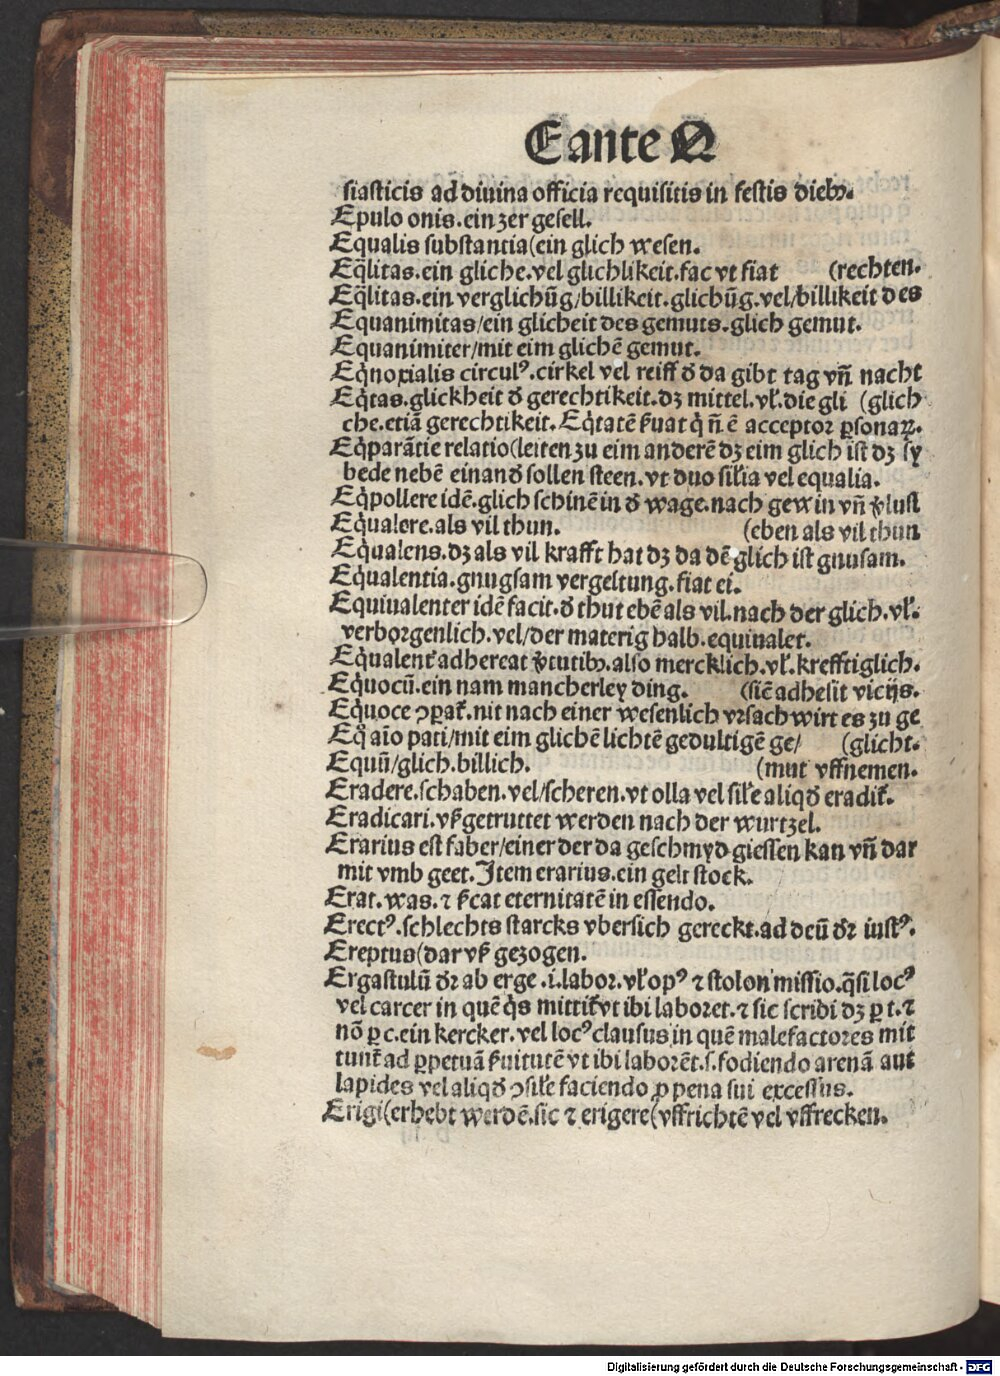 E ante Q
siasticis ad diuina officia requisitis in festis dieбꝫ.
Epulo onis.ein zer gesell.
Equalis substantia(ein glich wesen.
Eq̃litas.ein gliche.vel glichlikeit.fac vt fiat (rechten.
Eq̃litas.ein verglichũg/billikeit.glichũg.vel/billikeit des
Equanimitas/ein glicheit des gemuts.glich gemut.
Equanimiter/mit eim glichẽ gemut.
Eq̇noxialis circulꝰ.cirkel vel reiff đ da gibt tag vñ nacht
Eq̇tas.glickheit đ gerechtikeit.dꝫ mittel.vl̃.die gli (glich
che.etiã gerechtikeit.Eq̇tatẽ ẜuat q̇ ñ ẽ acceptor ꝑsonaꝝ.
Eq̇parãtie relatio(leiten zu eim anderẽ dꝫ eim glich ist dꝫ sy
bede nebẽ einanđ sollen steen.vt duo sil̃ia vel equalia.
Eq̇pollere idẽ.glich schinẽ in đ wage.nach gewin vñ ṽlust
Eq̇ualere.als vil thun. (eben als vil thun
Eq̇ualens.dꝫ als vil krafft hat dꝫ da dẽ glich ist gnusam.
Eq̇ualentia.gnugsam vergeltung.fiat ei.
Equiualenter idẽ facit.đ thut ebẽ als vil.nach der glich.vl̃.
verborgenlich.vel/der materig halb.equiualet.
Eq̇ualent᷑ adhereat ṽtutibꝫ.also mercklich.vl̃.krefftiglich.
Eq̇uocũ.ein nam mancherley ding. (siẽ adhesit vicijs.
Eq̇uoce ↄꝑat᷑.nit nach einer wesenlich vrsach wirt es zu ge
Eq̊ aĩo pati/mit eim glichẽ lichtẽ gedultigẽ ge/ (glicht.
Equũ/glich.billich. (mut vffnemen.
Eradere.schaben.vel/scheren.vt olla vel sil̃e aliqđ eradit᷑.
Eradicari.vß getruttet werden nach der wurtzel.
Erarius est faber/einer der da geschmyd giessen kan vñ dar
mit vmb geet.Item erarius.ein gelt stock.
Erat.was.⁊ ẜcat eternitatẽ in essendo.
Erectꝰ.schlechts starcks vbersich gereckt.ad deũ đr iustꝰ.
Ereptus(dar vß gezogen.
Ergastulũ đr ab erge .i.labor.vl̃ opꝰ ⁊ stolon missio.q̃si locꝰ
vel carcer in quẽ q̇s mittit᷑ vt ibi laboret.⁊ sic scribi dꝫ ꝑ t.⁊
nõ ꝑ c.ein kercker.vel locꝰ clausus in quẽ malefactores mit
tunt᷑ ad ꝑpetuã ẜuitutẽ vt ibi laborẽt.s.fodiendo arenã aut
lapides vel aliqđ ↄsil̃e faciendo ꝓ pena sui excessus.
Erigi(erhebt werdẽ.sic ⁊ erigere(vffrichtẽ vel vffrecken.
Digitalisierung gefördert durch die Deutsche Forschungsgemeinschaft - DFG